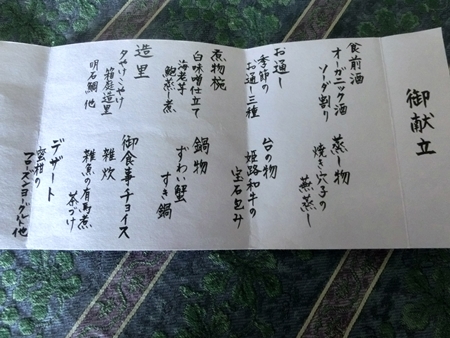 御献立
食前酒
オーガニック酒
ソーダ割り
お通し
季節の
お通し三種
煮物椀
白味噌仕立て
海老芋
鮑煮
造里
夕やけこやけ
箱庭造里
明石鯛 他
蒸し物
焼き穴子の
蕪蒸し
台の物
姫路和牛の
宝石包み
鍋物
ずわい蟹
すき鍋
御食事チョイス
雑炊
雑魚の有馬煮
茶づけ
デザート
蜜柑の
ヨーグルト他